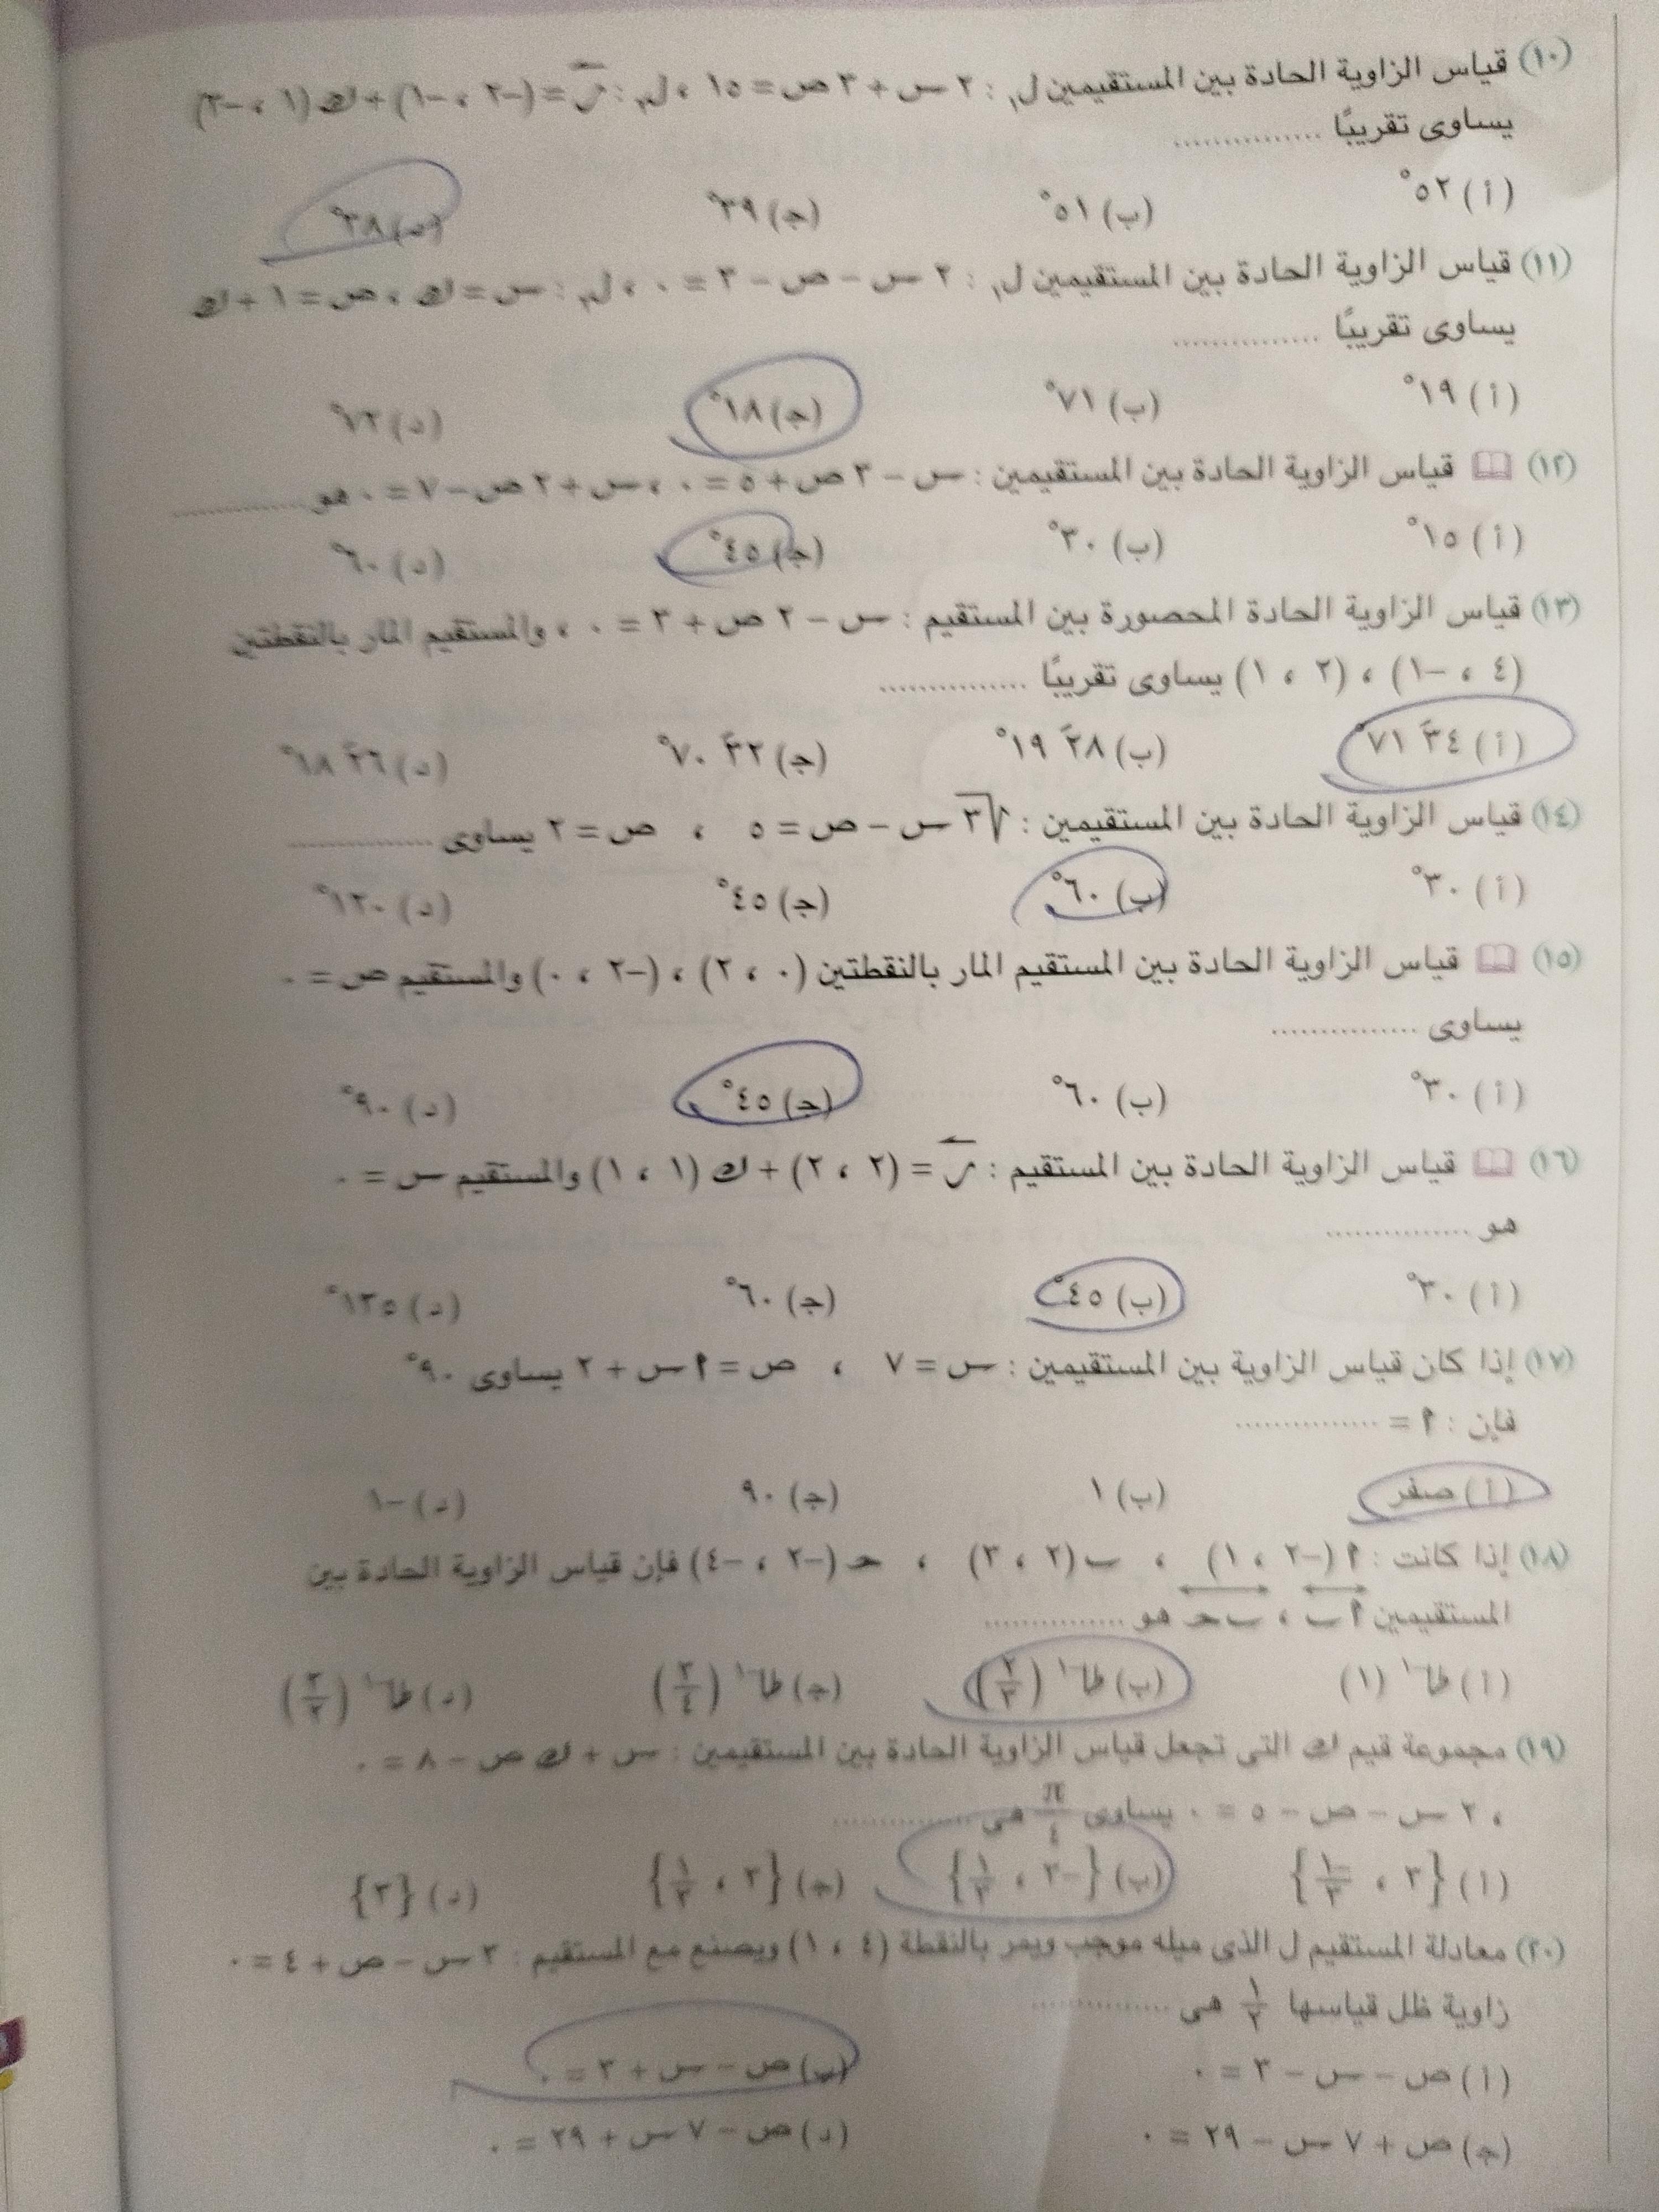 (١٠) قياس الزاوية الحادة بين المستقيمين ل١ : ٢ س + ٣ ص = ١٥ ، ل٢ : ر = (-٢ ، -١) + ك (١ ، -٣)
يساوى تقريبًا ...............
(أ) ٥٢° (ب) ٥١° (ج) ٣٩° (د) ٣٨°
(١١) قياس الزاوية الحادة بين المستقيمين ل١ : ٢ س - ص - ٣ = ٠ ، ل٢ : س = ك ، ص = ١ + ك
يساوى تقريبًا ...............
(أ) ١٩° (ب) ٧١° (ج) ١٨° (د) ٧٢°
(١٢) قياس الزاوية الحادة بين المستقيمين : س - ٣ ص + ٥ = ٠ ، س + ٢ ص - ٧ = ٠ هو ...............
(أ) ١٥° (ب) ٣٠° (ج) ٤٥° (د) ٦٠°
(١٣) قياس الزاوية الحادة المحصورة بين المستقيم : س - ٢ ص + ٣ = ٠ ، والمستقيم المار بالنقطتين
(٤ ، -١) ، (٢ ، ١) يساوى تقريبًا ...............
(أ) ٣٤ ٧١° (ب) ٢٨ ١٩° (ج) ٣٢ ٧٠° (د) ٢٦ ٦٨°
(١٤) قياس الزاوية الحادة بين المستقيمين : √٣ س - ص = ٥ ، ص = ٢ يساوى ...............
(أ) ٣٠° (ب) ٦٠° (ج) ٤٥° (د) ١٢٠°
(١٥) قياس الزاوية الحادة بين المستقيم المار بالنقطتين (٠ ، ٢) ، (-٢ ، ٠) والمستقيم ص = ٠
يساوى ...............
(أ) ٣٠° (ب) ٦٠° (ج) ٤٥° (د) ٩٠°
(١٦) قياس الزاوية الحادة بين المستقيم : ر = (٢ ، ٢) + ك (١ ، ١) والمستقيم س = ٠
هو ...............
(أ) ٣٠° (ب) ٤٥° (ج) ٦٠° (د) ١٣٥°
(١٧) إذا كان قياس الزاوية بين المستقيمين : س = ٧ ، ص = ٩ س + ٢ يساوى ٩٠°
فإن : ٩ = ...............
(أ) صفر (ب) ١ (ج) ٩٠ (د) -١
(١٨) إذا كانت : ٩ (-٢ ، ١) ، ب (٢ ، ٣) ، ح (-٢ ، -٤) فإن قياس الزاوية الحادة بين
المستقيمين ٩ ب ، ب ح هو ...............
(أ) طا-١ (١) (ب) طا-١ (٢/٣) (ج) طا-١ (٣/٤) (د) طا-١ (٣/٢)
(١٩) مجموعة قيم ك التى تجعل قياس الزاوية الحادة بين المستقيمين : س + ك ص - ٨ = ٠
، ٢ س - ص - ٥ = ٠ يساوى π/٤ هى ...............
(أ) {٣ ، -١/٣} (ب) {-٣ ، ١/٣} (ج) {٣ ، ١/٣} (د) {٣}
(٢٠) معادلة المستقيم ل الذى ميله موجب ويمر بالنقطة (٤ ، ١) ويصنع مع المستقيم : ٣ س - ص + ٤ = ٠
زاوية ظل قياسها ١/٢ هى ...............
(أ) ص - س - ٣ = ٠ (ب) ص - س + ٣ = ٠
(ج) ص + ٧ س - ٢٩ = ٠ (د) ص - ٧ س + ٢٩ = ٠